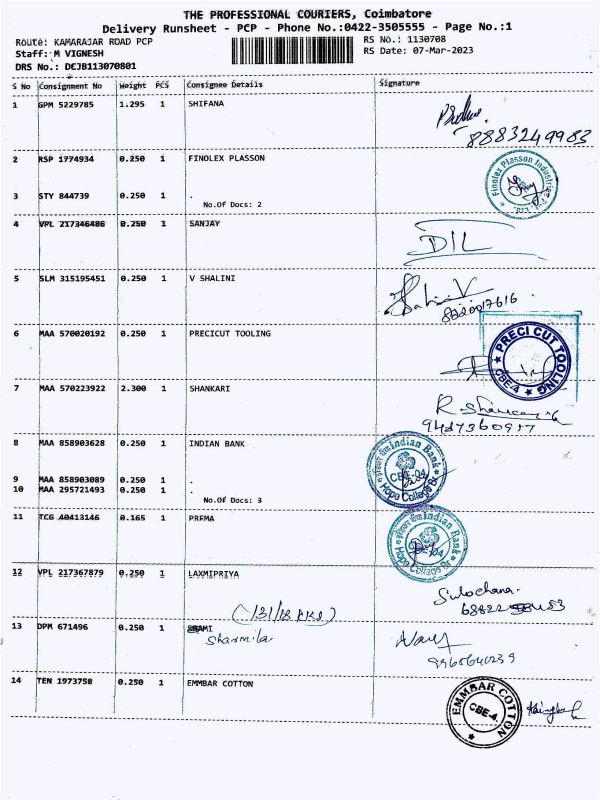 THE PROFESSIONAL COURIERS, Coimbatore
Delivery Runsheet - PCP - Phone No.:0422-3505555 - Page No.:1
Route: KAMARAJAR ROAD PCP
RS No.: 1130708
Staff: M VIGNESH
RS Date: 07-Mar-2023
DRS No.: DEJB113070801
S No Consignment No Weight PCS Consignee Details Signature
1 GPM 5229785 1.295 1 SHIFANA
8883249983
2 RSP 1774934 0.250 1 FINOLEX PLASSON
Finolex Plasson Industries
3 STY 844739 0.250 1 .
No.Of Docs: 2
4 VPL 217346486 0.250 1 SANJAY
DIL
5 SLM 315195451 0.250 1 V SHALINI
Shalini V
8220017616
6 MAA 570020192 0.250 1 PRECICUT TOOLING
PRECI CUT TOOLING
CBE-4
7 MAA 570223922 2.300 1 SHANKARI
R Shankari
8 MAA 858903628 0.250 1 INDIAN BANK
Indian Bank
Hope College Br
9 MAA 858903089 0.250 1 .
10 MAA 295721493 0.250 1 .
No.Of Docs: 3
11 TCG 40413146 0.165 1 PREMA
Indian Bank
Hope College Br
12 VPL 217367879 0.250 1 LAXMIPRIYA
Sulochana
13 DPM 671496 0.250 1
Sharmila
14 TEN 1973758 0.250 1 EMMBAR COTTON
EMMBAR COTTON
CBE-4.